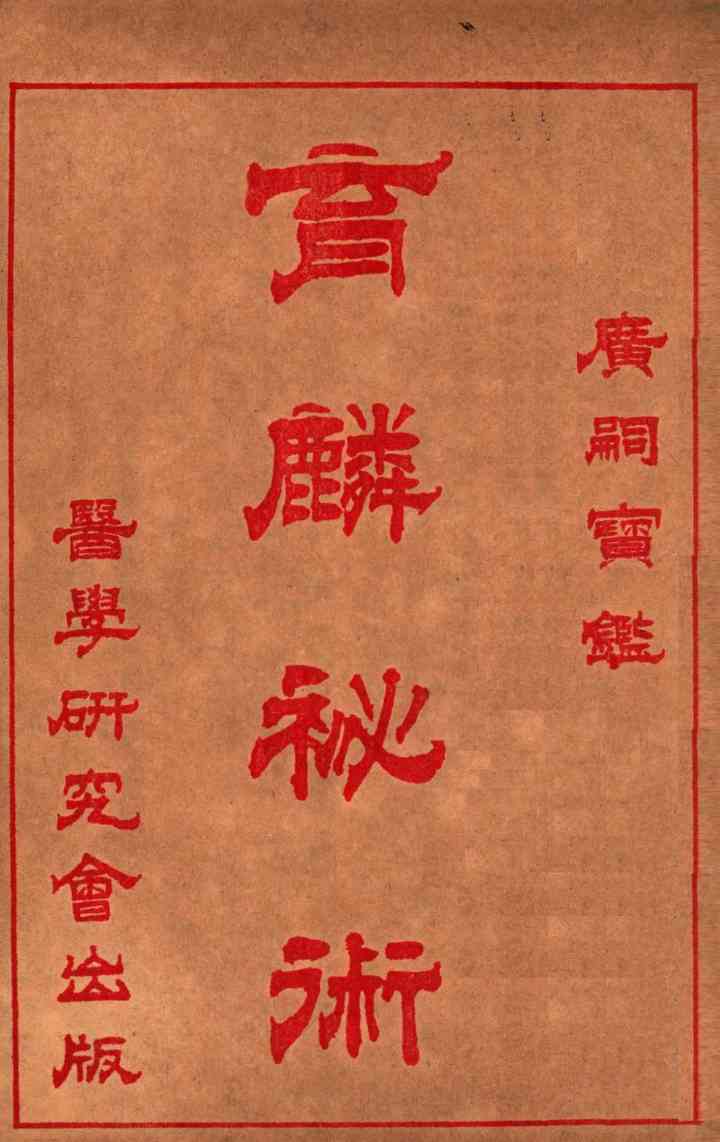 廣嗣寶鑑
育麟祕術
醫學研究會出版